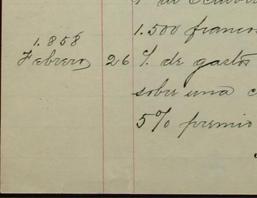 1.500 franco
1.858
Febrero 26 % de gastos
sobre una c
5% premio